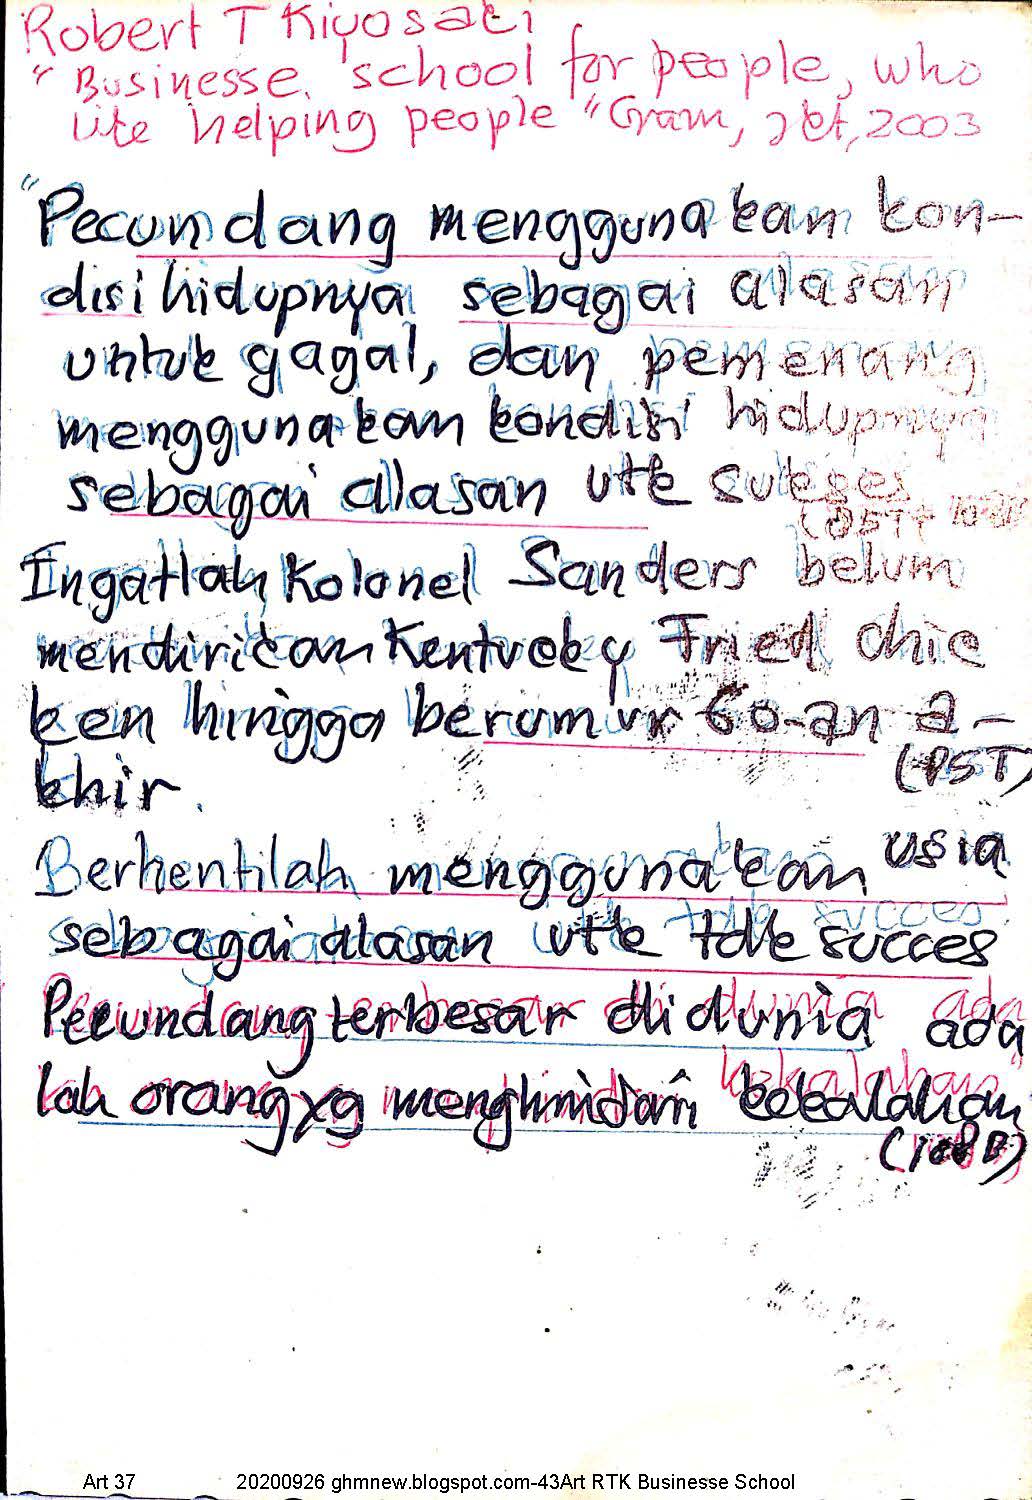 Robert T Kiyosaki
" Businesse school for people, who
like helping people " Gram, Jkt, 2003
"Pecundang menggunakan kon-
disi hidupnya sebagai alasan
untuk gagal, dan pemenang
menggunakan kondisi hidupnya
sebagai alasan utk sukses
Ingatlah Kolonel Sanders belum
mendirikan Kentucky Fried Chic
ken hingga berumur 60-an a-
khir.
(PST)
Berhentilah menggunakan usia
sebagai alasan utk tdk succes
Pecundang terbesar di dunia ada
lah orang yg menghindari kekalahan
Art 37 20200926 ghmnew.blogspot.com-43Art RTK Businesse School